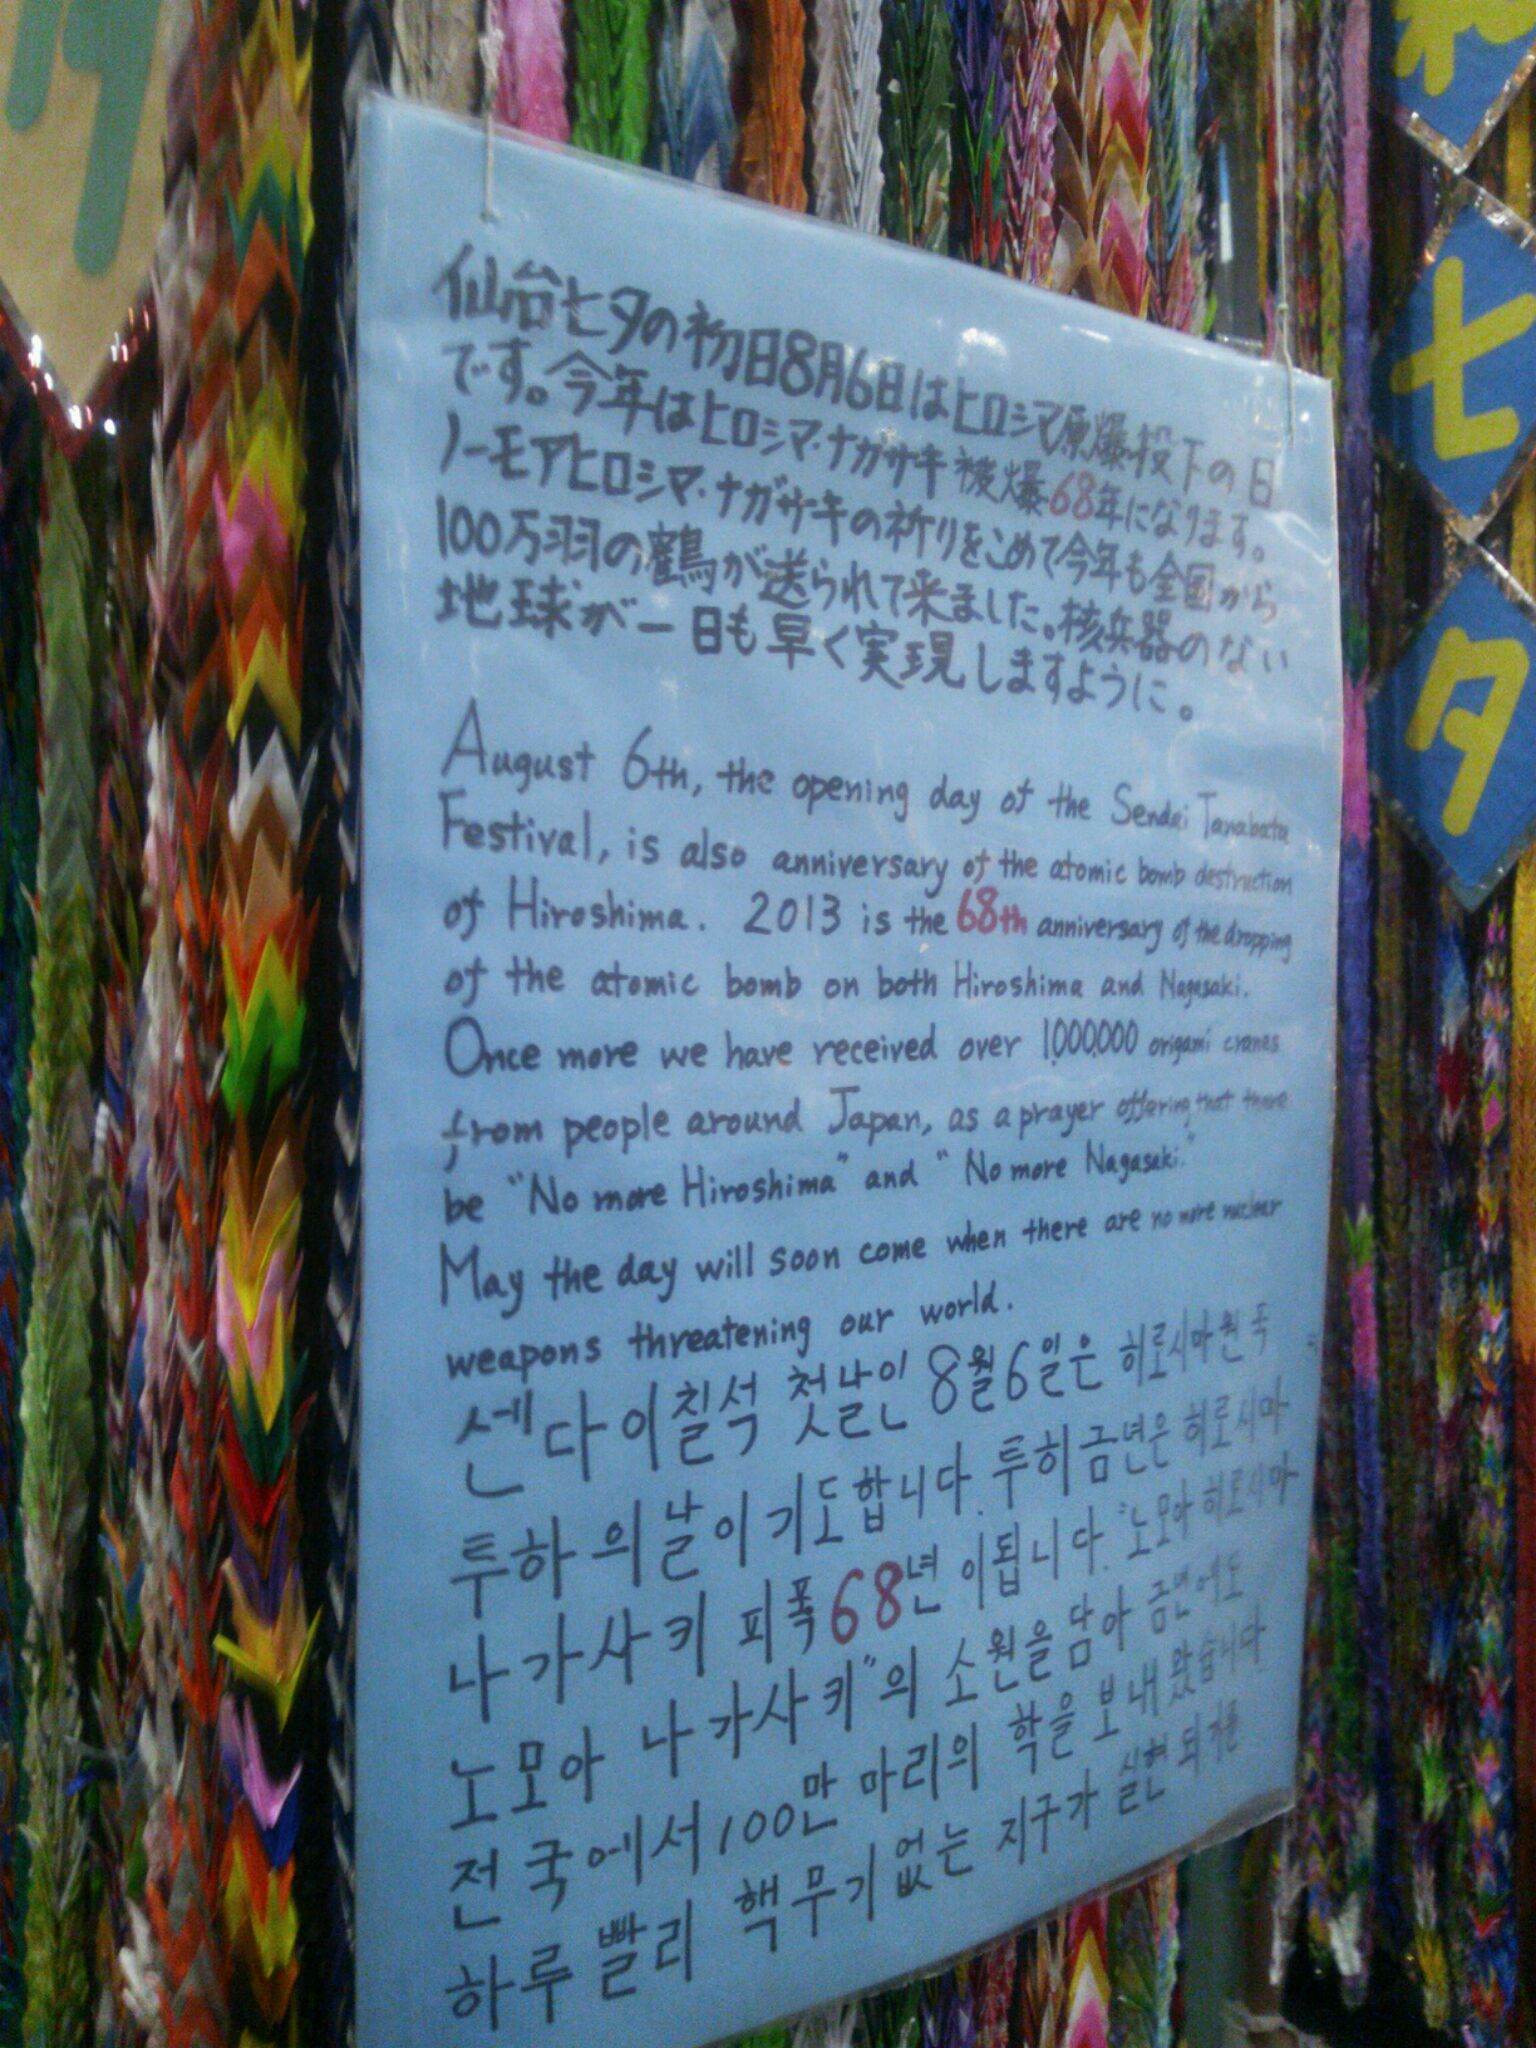 仙台七夕の初日8月6日はヒロシマ原爆投下の日
です。今年はヒロシマ・ナガサキ被爆68年になります。
ノーモアヒロシマ・ナガサキの祈りをこめて今年も全国から
100万羽の鶴が送られて来ました。核兵器のない
地球が一日も早く実現しますように。
August 6th, the opening day of the Sendai Tanabata
Festival, is also anniversary of the atomic bomb destruction
of Hiroshima. 2013 is the 68th anniversary of the dropping
of the atomic bomb on both Hiroshima and Nagasaki.
Once more we have received over 1,000,000 origami cranes
from people around Japan, as a prayer offering that there
be "No more Hiroshima" and "No more Nagasaki."
May the day will soon come when there are no more nuclear
weapons threatening our world.
센다이칠석 첫날인 8월6일은 히로시마원폭
투하의날이기도합니다. 투히금년은 히로시마
나가사키 피폭68년 이됩니다. "노모아 히로시마
노모아 나가사키"의 소원을담아 금년에도
전국에서100만마리의 학을 보내왔습니다
하루빨리 핵무기없는 지구가 실현되기를
七
夕